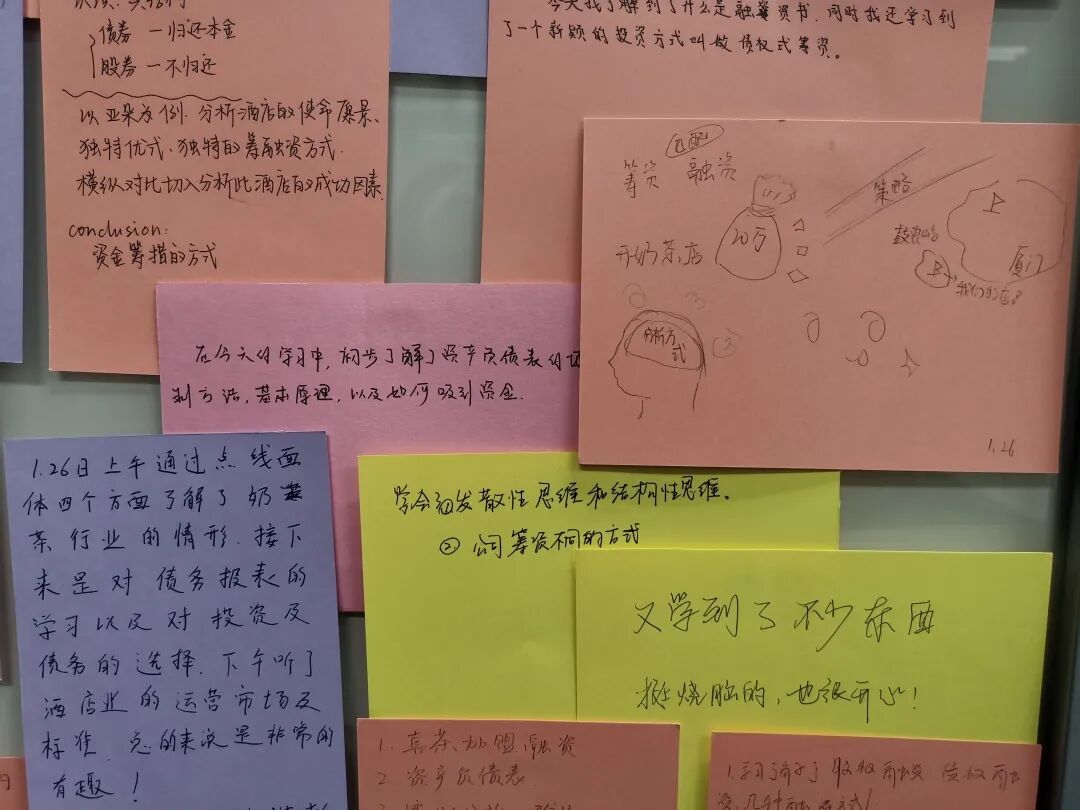 债券 —归还本金
股券 —不归还
以亚朵为例.分析酒店的使命愿景、
独特优式、独特的筹融资方式.
横纵对比切入分析此酒店的成功因素.
conclusion:
资金筹措的方式
今天我了解到了什么是融资书.同时我还学习到
了一个新颖的投资方式叫做债权式筹资。
匹配
筹资 融资
策略
20万
开奶茶店
鼓浪屿
B
厦门
分析方
式
1.26
在今天的学习中,初步了解了资产负债表的
制方法,基本原理,以及如何吸引资金.
1.26日上午通过点线面
体四个方面了解了奶
茶行业的情形.接下
来是对债务报表的
学习以及对投资及
债务的选择.下午听了
酒店业的运营市场及
标准.总的来说是非常的
有趣!
学会初发散性思维和结构性思维。
② 公司筹资不同的方式
又学到了不少东西
挺烧脑的,也很开心!
1. 喜茶、加盟、融资
2 资产负债表
1.学习了 股权融资 债权融
资几种融资方式!